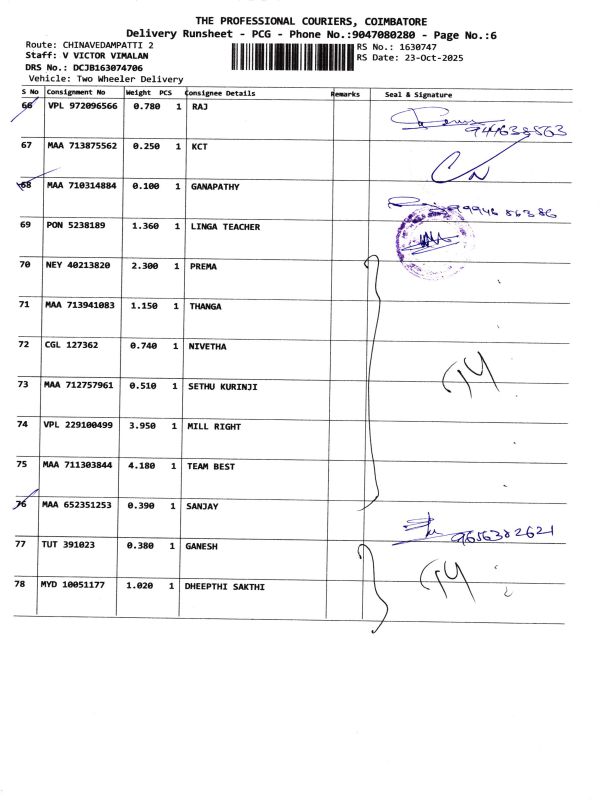 THE PROFESSIONAL COURIERS, COIMBATORE
Delivery Runsheet - PCG - Phone No.:9047080280 - Page No.:6
Route: CHINAVEDAMPATTI 2
RS No.: 1630747
Staff: V VICTOR VIMALAN
RS Date: 23-Oct-2025
DRS No.: DCJB163074706
Vehicle: Two Wheeler Delivery
S No Consignment No Weight PCS Consignee Details Remarks Seal & Signature
66 VPL 972096566 0.780 1 RAJ
67 MAA 713875562 0.250 1 KCT
68 MAA 710314884 0.100 1 GANAPATHY
69 PON 5238189 1.360 1 LINGA TEACHER
70 NEY 40213820 2.300 1 PREMA
71 MAA 713941083 1.150 1 THANGA
72 CGL 127362 0.740 1 NIVETHA
73 MAA 712757961 0.510 1 SETHU KURINJI
74 VPL 229100499 3.950 1 MILL RIGHT
75 MAA 711303844 4.180 1 TEAM BEST
76 MAA 652351253 0.390 1 SANJAY
9656382621
77 TUT 391023 0.380 1 GANESH
78 MYD 10051177 1.020 1 DHEEPTHI SAKTHI